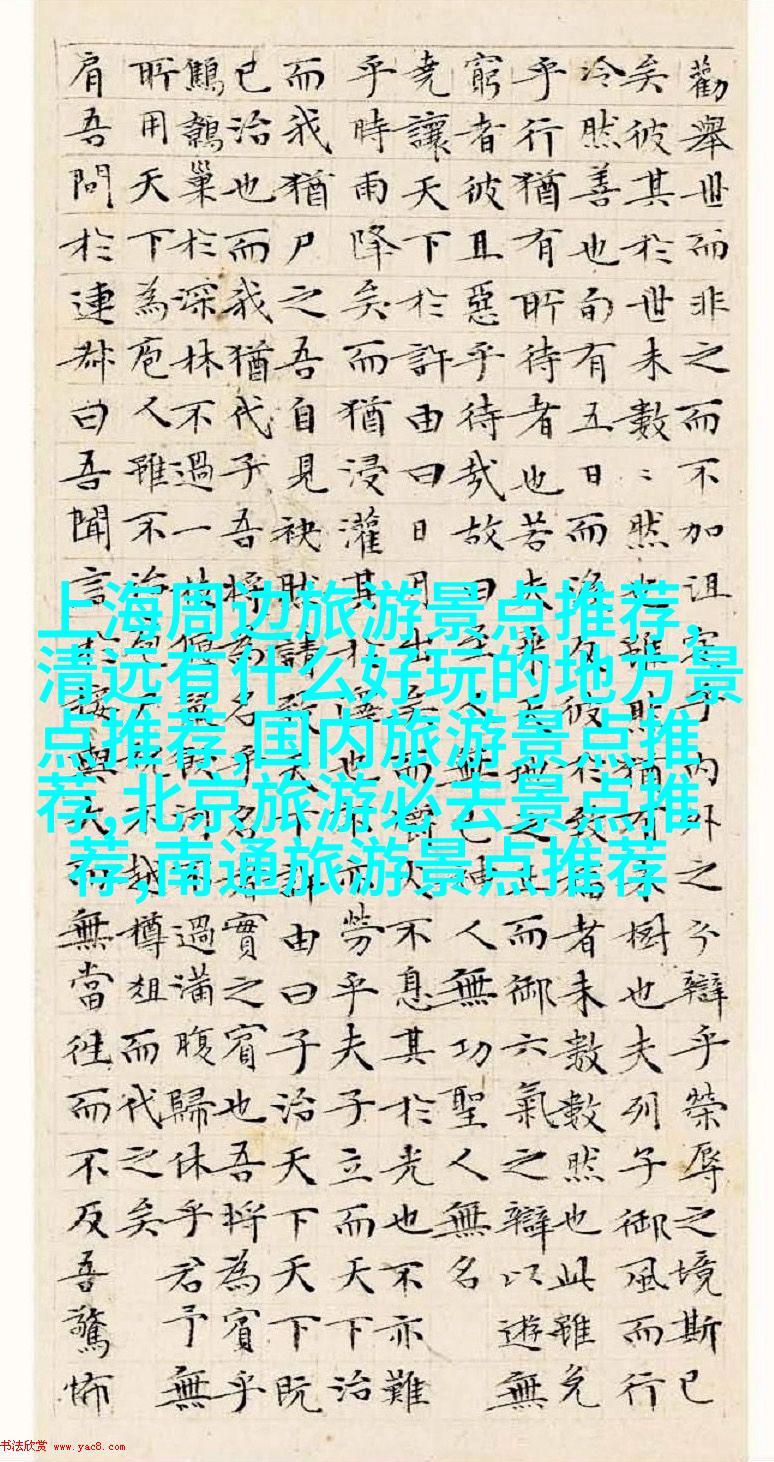 勸舉世而非之而不加沮定乎內外之分辯乎榮辱之境斯已
矣彼其於世未數〻然也雖然猶有未樹也夫列子御風而行
冷然善也旬有五日〻而後反彼於致福者未數數然也此雖免
乎行猶有所待者也若夫乘天地之正而御六氣之辯以遊無
窮者彼且惡乎待哉故曰至人無己神人無功聖人無名
堯讓天下於許由曰日月出矣而爝火不息其於光也不亦難
乎時雨降矣而猶浸灌其於澤也不亦勞乎夫子立而天下治
而我猶尸之吾自見缺然請致天下許由曰子治天下天下既
已治也而我猶代子吾將為名乎名者實之賓也吾將為賓乎
鷦鷯巢於深林不過一枝偃鼠飲河不過滿腹歸休乎君予無
所用天下為庖人雖不治庖尸祝不越樽俎而代之矣
肩吾問於連叔曰吾聞言於接輿大而無當往而不反吾驚怖
上海周边旅游景点推荐,
清远有什么好玩的地方景
点推荐,国内旅游景点推
荐,北京旅游必去景点推
荐,南通旅游景点推荐
书法欣赏 www.yac8.com